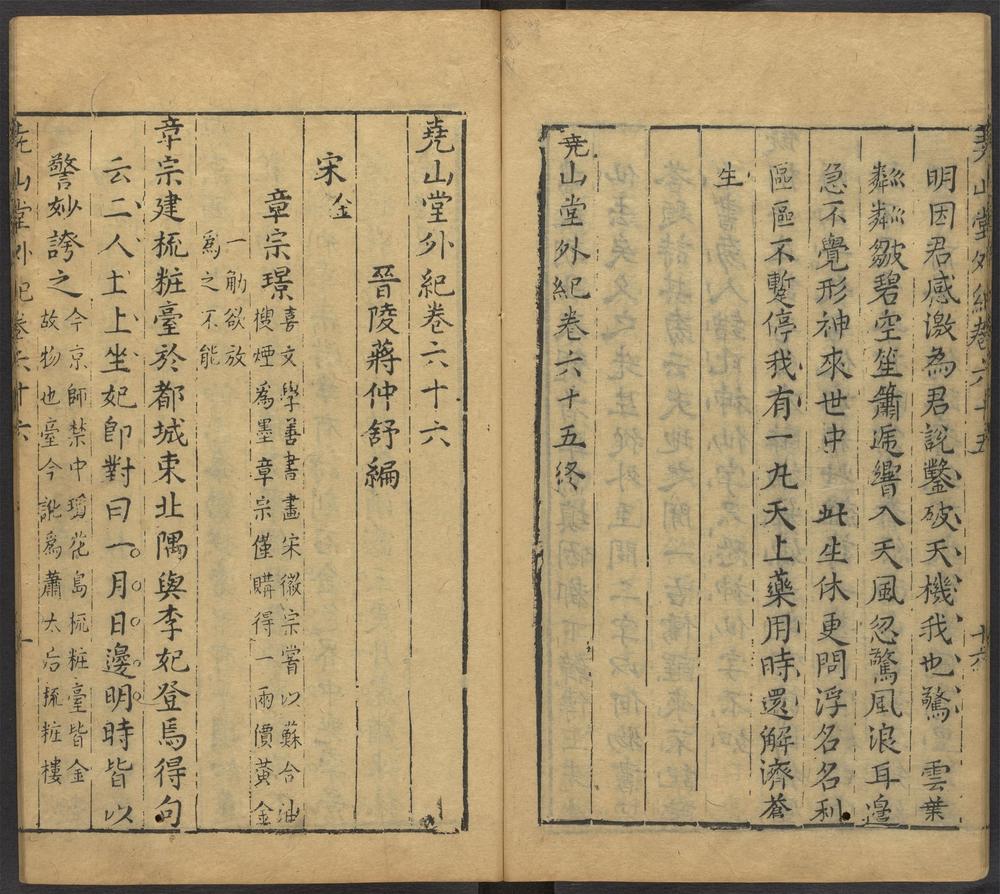 堯山堂外紀卷六十五
十六
明因君感激為君說鑿破天機我也驚 雲葉
粼粼皺碧空笙簫逓響入天風忽驚風浪耳邉
急不覺形神來世中 此生休更問浮名名利
區區不暫停我有一九天上藥用時還解濟蒼
生
堯山堂外紀卷六十五終
堯山堂外紀卷六十六
晉陵蔣仲舒編
宋金
章宗璟喜文學善書畫宋徽宗嘗以蘇合油
搜煙爲墨章宗僅購得一兩價黃金
一觔欲放
爲之不能
章宗建梳粧臺於都城東北隅與李妃登焉得句
云二人土上坐妃卽對曰一月日邊明時皆以
警妙誇之今京師禁中瓊花島梳粧臺皆金
故物也臺今訛爲蕭太后梳粧樓
堯山堂外紀卷六十六
一